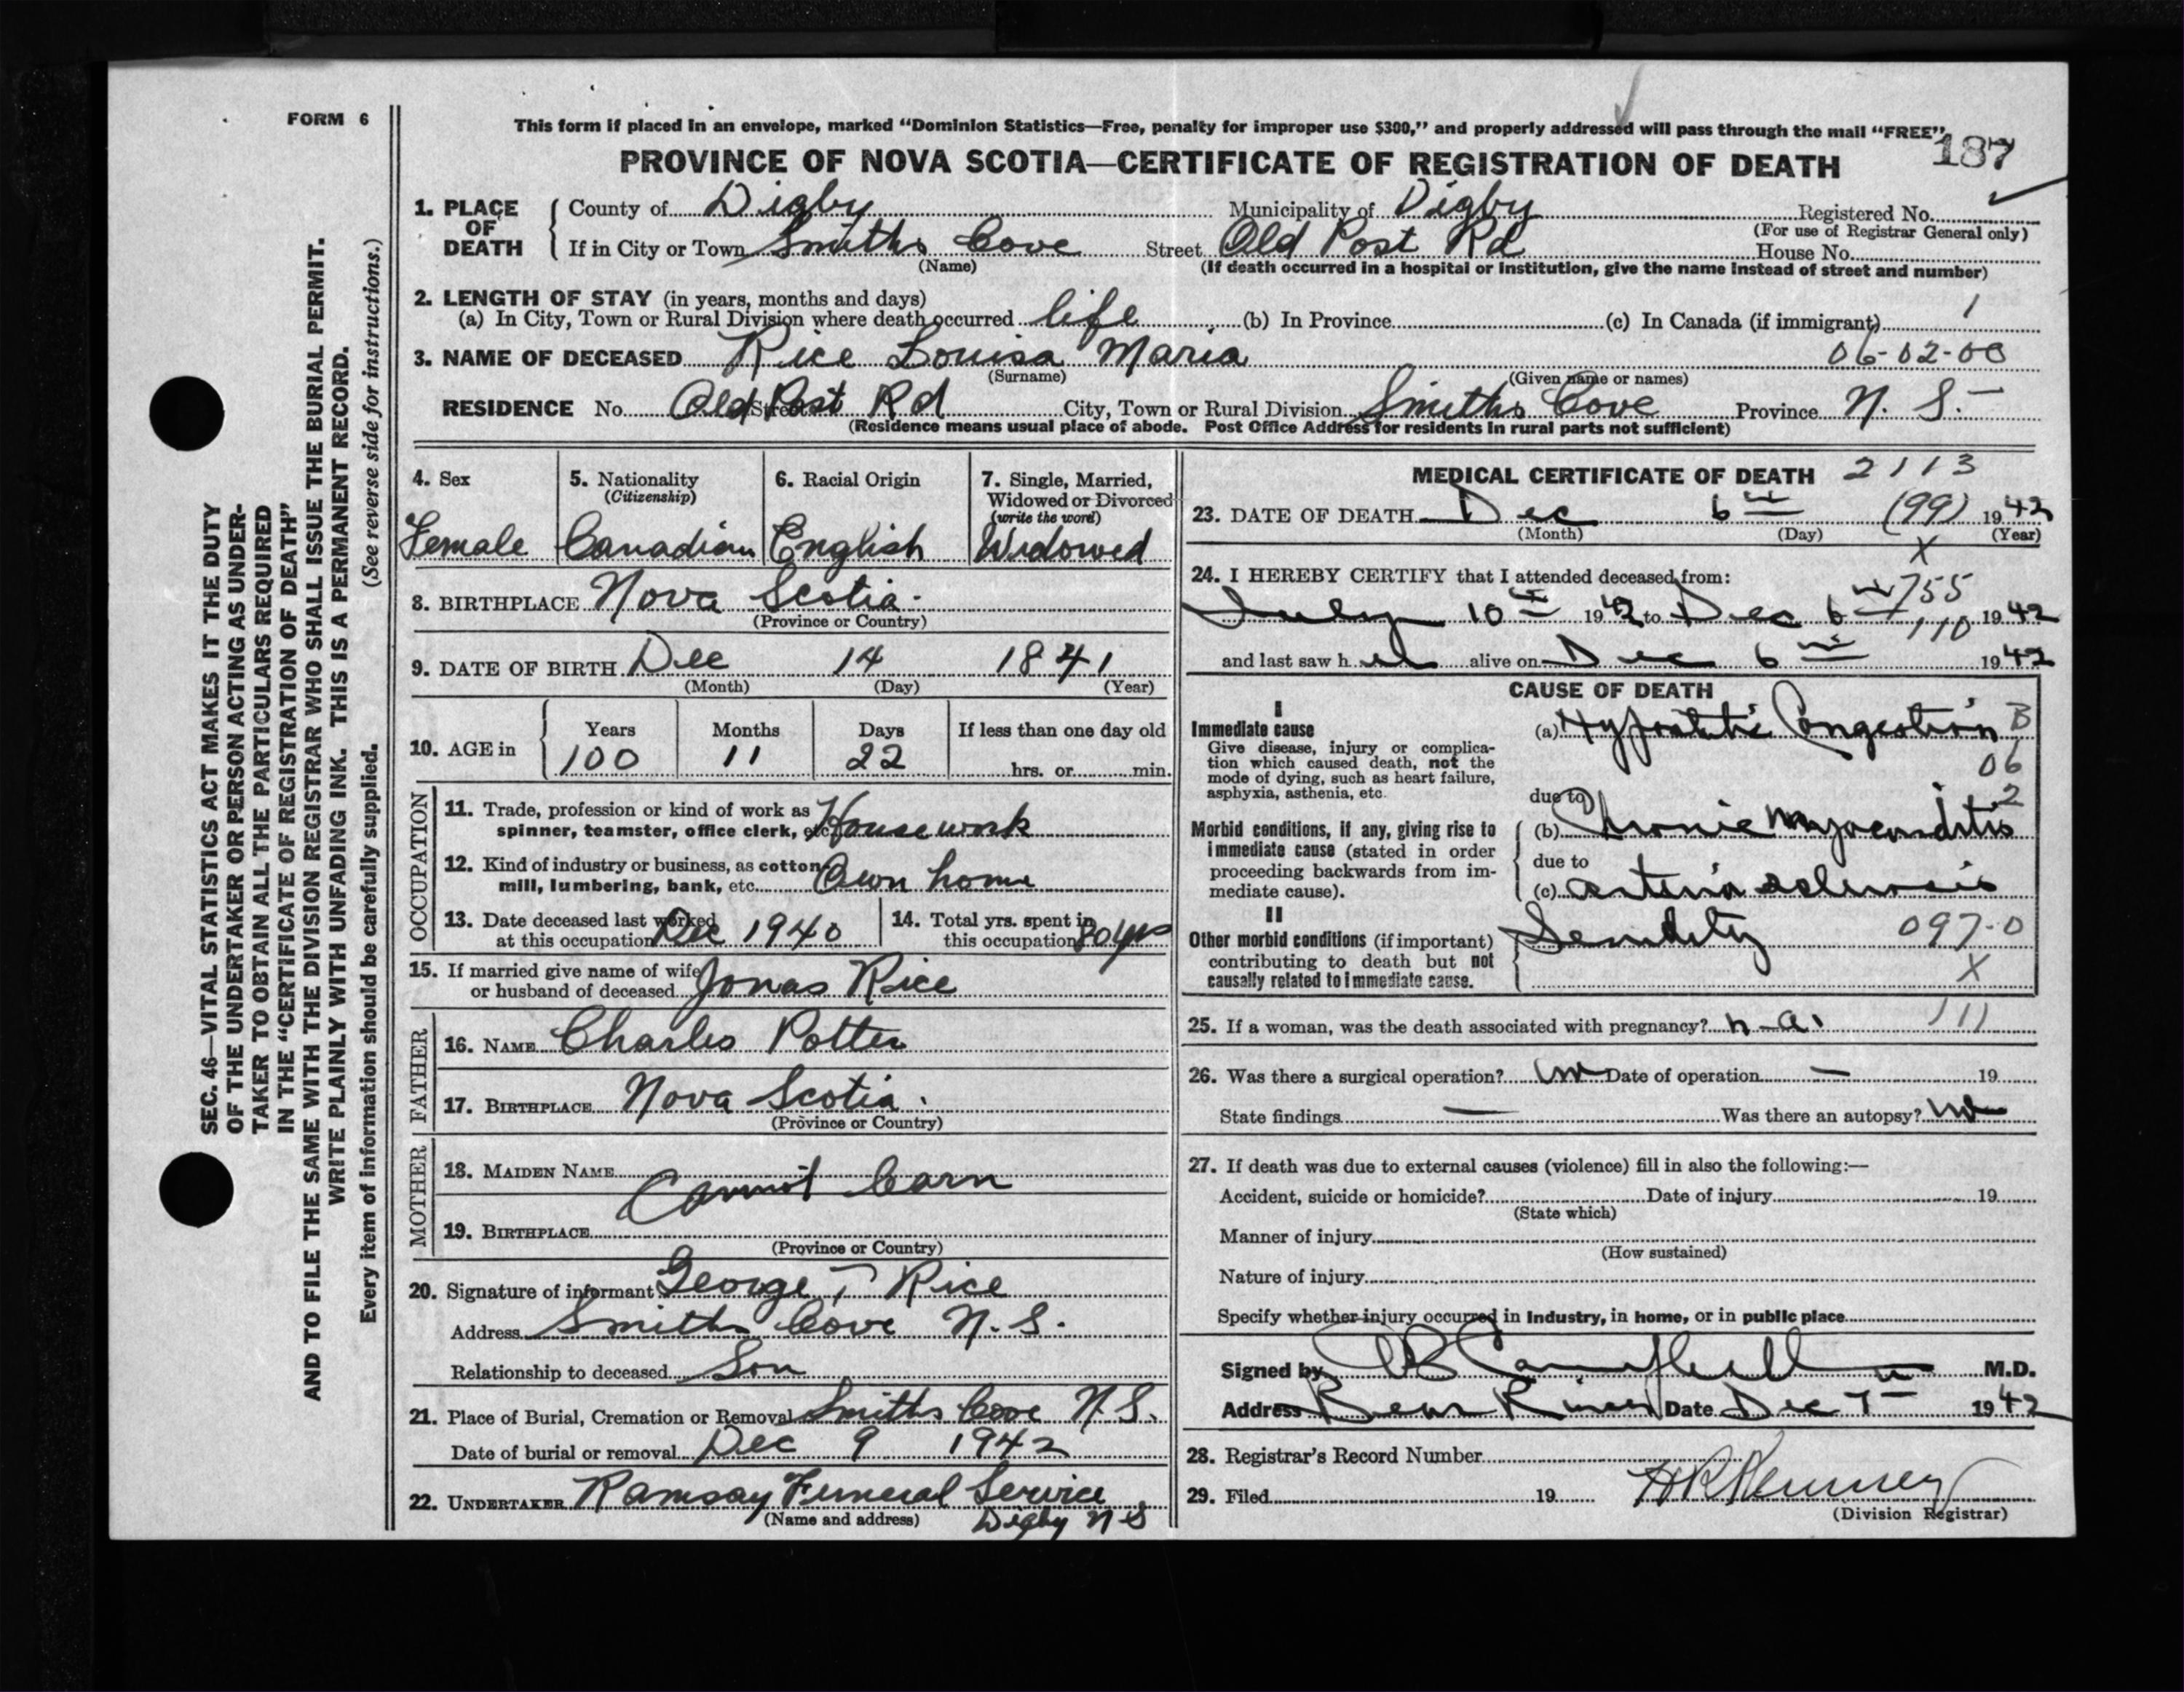 FORM 6
This form if placed in an envelope, marked “Dominion Statistics—Free, penalty for improper use $300,” and properly addressed will pass through the mail “FREE”
187
PROVINCE OF NOVA SCOTIA—CERTIFICATE OF REGISTRATION OF DEATH
1. PLACE OF DEATH
County of Digby Municipality of Digby Registered No.
(For use of Registrar General only)
If in City or Town Smiths Cove Street Old Post Rd House No.
(Name) (If death occurred in a hospital or institution, give the name instead of street and number)
2. LENGTH OF STAY (in years, months and days)
(a) In City, Town or Rural Division where death occurred life (b) In Province (c) In Canada (if immigrant) 1
3. NAME OF DECEASED Rice Louisa Maria 06-02-00
(Surname) (Given name or names)
RESIDENCE No. Old Post Rd Street City, Town or Rural Division Smiths Cove Province N. S.
(Residence means usual place of abode. Post Office Address for residents in rural parts not sufficient)
4. Sex Female
5. Nationality (Citizenship) Canadian
6. Racial Origin English
7. Single, Married, Widowed or Divorced (write the word) Widowed
8. BIRTHPLACE Nova Scotia
(Province or Country)
9. DATE OF BIRTH Dec 14 1841
(Month) (Day) (Year)
10. AGE in Years Months Days If less than one day old
100 11 22 hrs. or min.
OCCUPATION
11. Trade, profession or kind of work as
spinner, teamster, office clerk, etc. Housework
12. Kind of industry or business, as cotton
mill, lumbering, bank, etc. Own home
13. Date deceased last worked
at this occupation Dec 1940
14. Total yrs. spent in
this occupation 80 yrs
15. If married give name of wife
or husband of deceased Jonas Rice
FATHER
16. NAME Charles Potter
17. BIRTHPLACE Nova Scotia
(Province or Country)
MOTHER
18. MAIDEN NAME Cannot learn
19. BIRTHPLACE
(Province or Country)
20. Signature of informant George T Rice
Address Smiths Cove N. S.
Relationship to deceased Son
21. Place of Burial, Cremation or Removal Smiths Cove N.S.
Date of burial or removal Dec 9 1942
22. UNDERTAKER Ramsay Funeral Service
(Name and address) Digby N S
MEDICAL CERTIFICATE OF DEATH 2113
23. DATE OF DEATH Dec 6th (99) 1942
(Month) (Day) (Year)
X
24. I HEREBY CERTIFY that I attended deceased from:
755
July 10th 1942 to Dec 6th 1942
110
and last saw her alive on Dec 6th 1942
CAUSE OF DEATH
I
Immediate cause
Give disease, injury or complica-
tion which caused death, not the
mode of dying, such as heart failure,
asphyxia, asthenia, etc.
(a) Hypostatic Congestion B
06
2
due to
Morbid conditions, if any, giving rise to
immediate cause (stated in order
proceeding backwards from im-
mediate cause).
(b) Chronic Myocarditis
due to
(c) arterio sclerosis
II
Other morbid conditions (if important)
contributing to death but not
causally related to immediate cause.
Senility 097-0
X
25. If a woman, was the death associated with pregnancy? n-a. 111
26. Was there a surgical operation? no Date of operation — 19
State findings — Was there an autopsy? no
27. If death was due to external causes (violence) fill in also the following:—
Accident, suicide or homicide? Date of injury 19
(State which)
Manner of injury
(How sustained)
Nature of injury
Specify whether injury occurred in industry, in home, or in public place
Signed by Campbell M.D.
Address Bear River Date Dec 7th 1942
28. Registrar's Record Number
29. Filed 19 H R Kenney
(Division Registrar)
SEC. 46—VITAL STATISTICS ACT MAKES IT THE DUTY
OF THE UNDERTAKER OR PERSON ACTING AS UNDER-
TAKER TO OBTAIN ALL THE PARTICULARS REQUIRED
IN THE “CERTIFICATE OF REGISTRATION OF DEATH”
AND TO FILE THE SAME WITH THE DIVISION REGISTRAR WHO SHALL ISSUE THE BURIAL PERMIT.
WRITE PLAINLY WITH UNFADING INK. THIS IS A PERMANENT RECORD.
Every item of information should be carefully supplied. (See reverse side for instructions.)